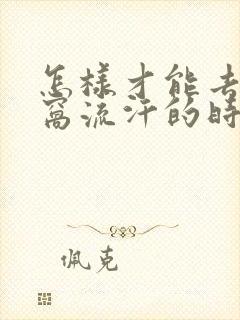 怎樣才能去
窩流汗的時
佩克